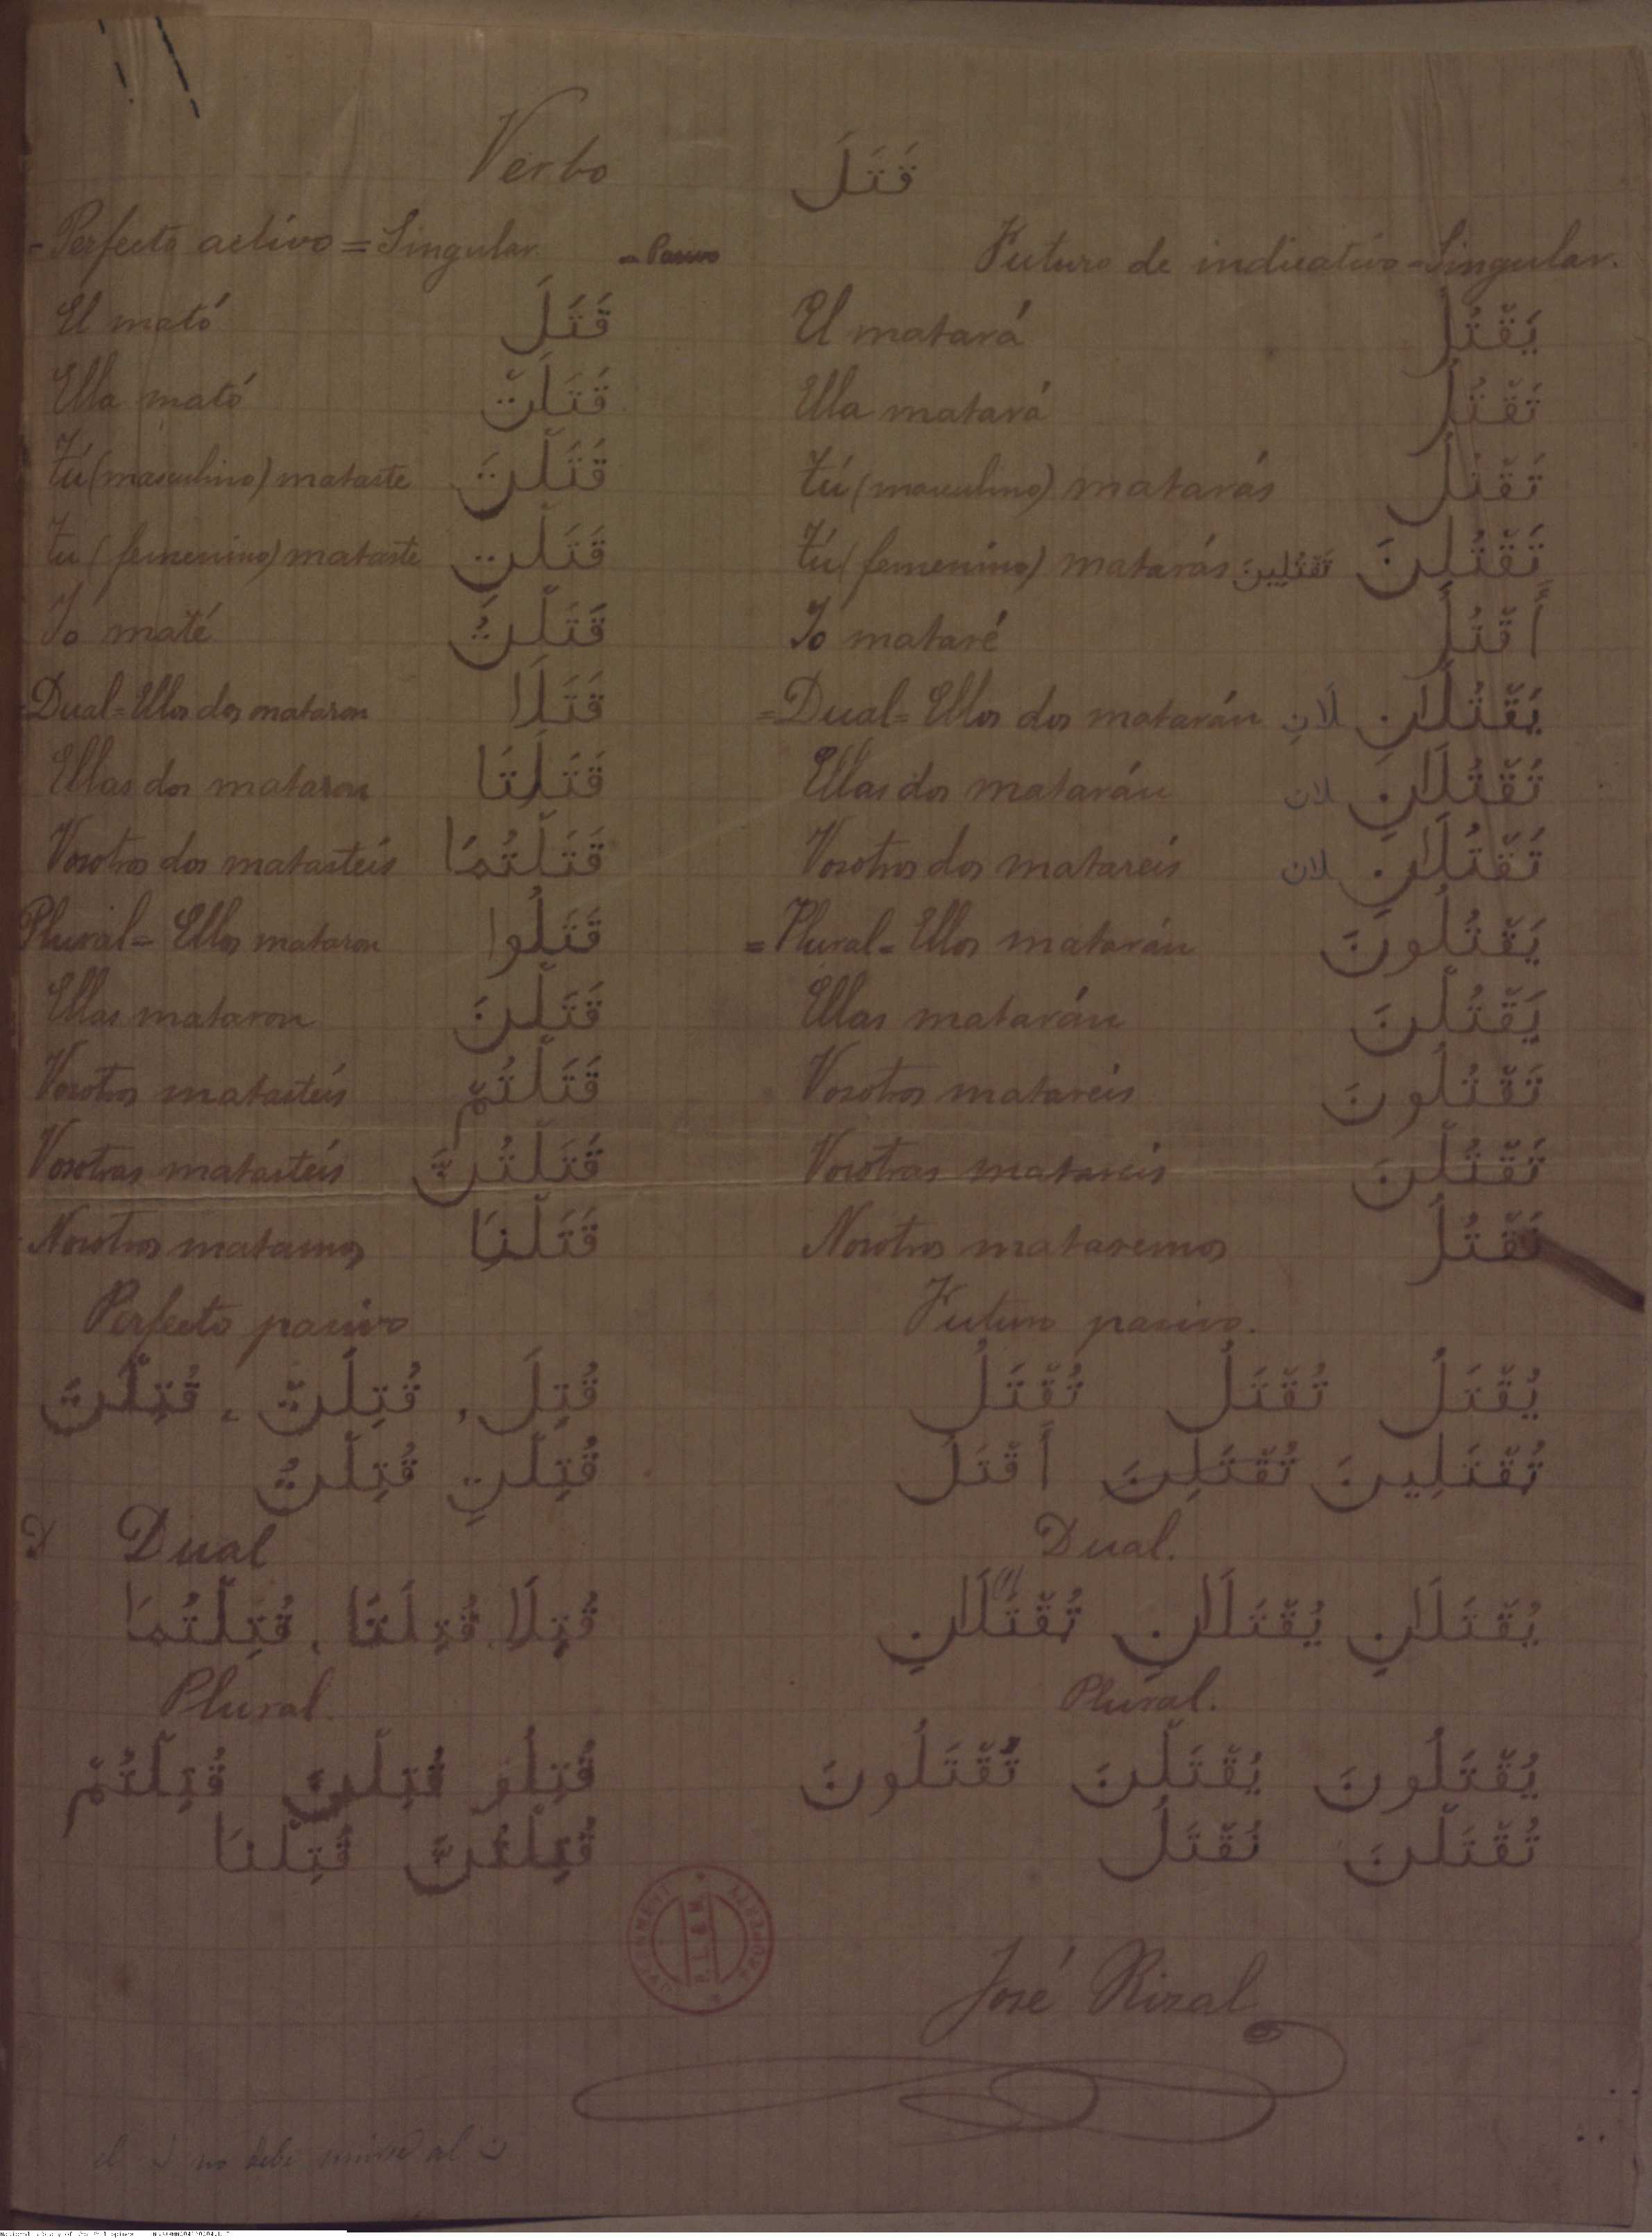 Verbo قَتَلَ
- Perfecto activo = Singular. - Pasivo
El mató قَتَلَ
Ella mató قَتَلَتْ
Tú (masculino) mataste قَتَلْتَ
Tu (femenino) mataste قَتَلْتِ
Yo maté قَتَلْتُ
= Dual = Ellos dos mataron قَتَلَا
Ellas dos mataron قَتَلَتَا
Vosotros dos matasteis قَتَلْتُمَا
Plural = Ellos mataron قَتَلُوا
Ellas mataron قَتَلْنَ
Vosotros matasteis قَتَلْتُمْ
Vosotras matasteis قَتَلْتُنَّ
Nosotros matamos قَتَلْنَا
Perfecto pasivo
قُتِلَ، قُتِلَتْ، قُتِلْتَ
قُتِلْتِ قُتِلْتُ
D Dual
قُتِلَا، قُتِلَتَا، قُتِلْتُمَا
Plural.
قُتِلُو قُتِلْنَ قُتِلْتُمْ
قُتِلْتُنَّ قُتِلْنَا
Futuro de indicativo = Singular.
El matará يَقْتُلُ
Ella matará تَقْتُلُ
Tú (masculino) matarás تَقْتُلُ
Tú (femenino) matarás تَقْتُلِينَ تَقْتُلِنَ
Yo mataré أَقْتُلُ
= Dual = Ellos dos matarán لَانِ يَقْتُلَانِ
Ellas dos matarán لان تَقْتُلَانِ
Vosotros dos matareis لان تَقْتُلَانِ
= Plural = Ellos matarán يَقْتُلُونَ
Ellas matarán يَقْتُلْنَ
Vosotros matareis تَقْتُلُونَ
Vosotras matareis تَقْتُلْنَ
Nosotros mataremos نَقْتُلُ
Futuro pasivo.
يُقْتَلُ تُقْتَلُ تُقْتَلُ
تُقْتَلِينَ تُقْتَلِنَ أُقْتَلُ
Dual.
يُقْتَلَانِ يُقْتَلَانِ تُقْتَلَانِ
Plural.
يُقْتَلُونَ يُقْتَلْنَ تُقْتَلُونَ
تُقْتَلْنَ نُقْتَلُ
P.L.& M.
José Rizal
el ل no debe unirse al ن